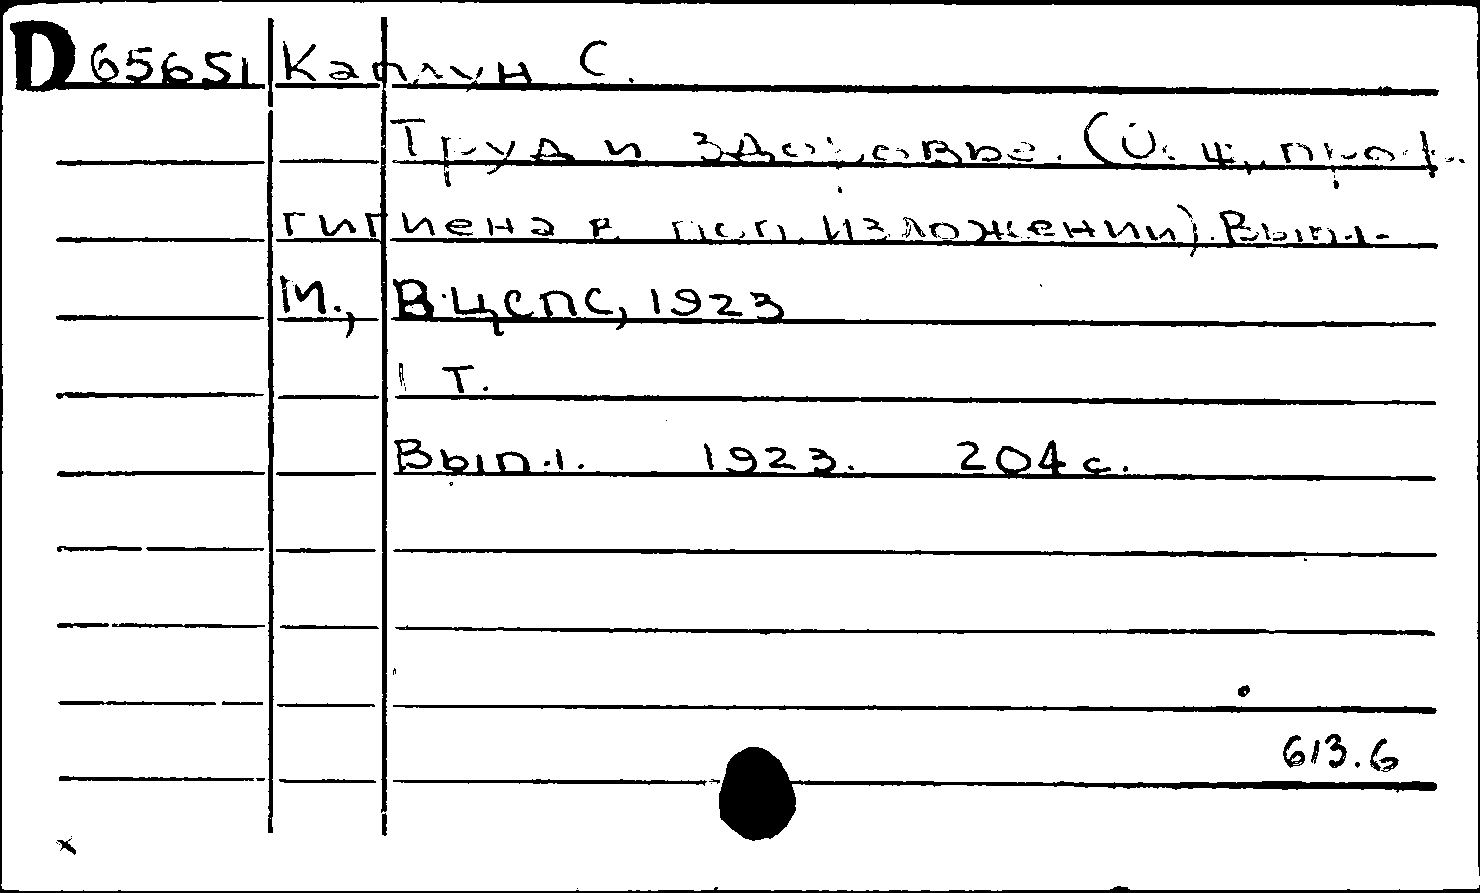 D 65651 Каплун С.
Труд и здоровье. (Общ. проф.
гигиена в поп. изложении). Вып.1-
М., ВЦСПС, 1923
1 т.
Вып.1. 1923. 204 с.
613.6